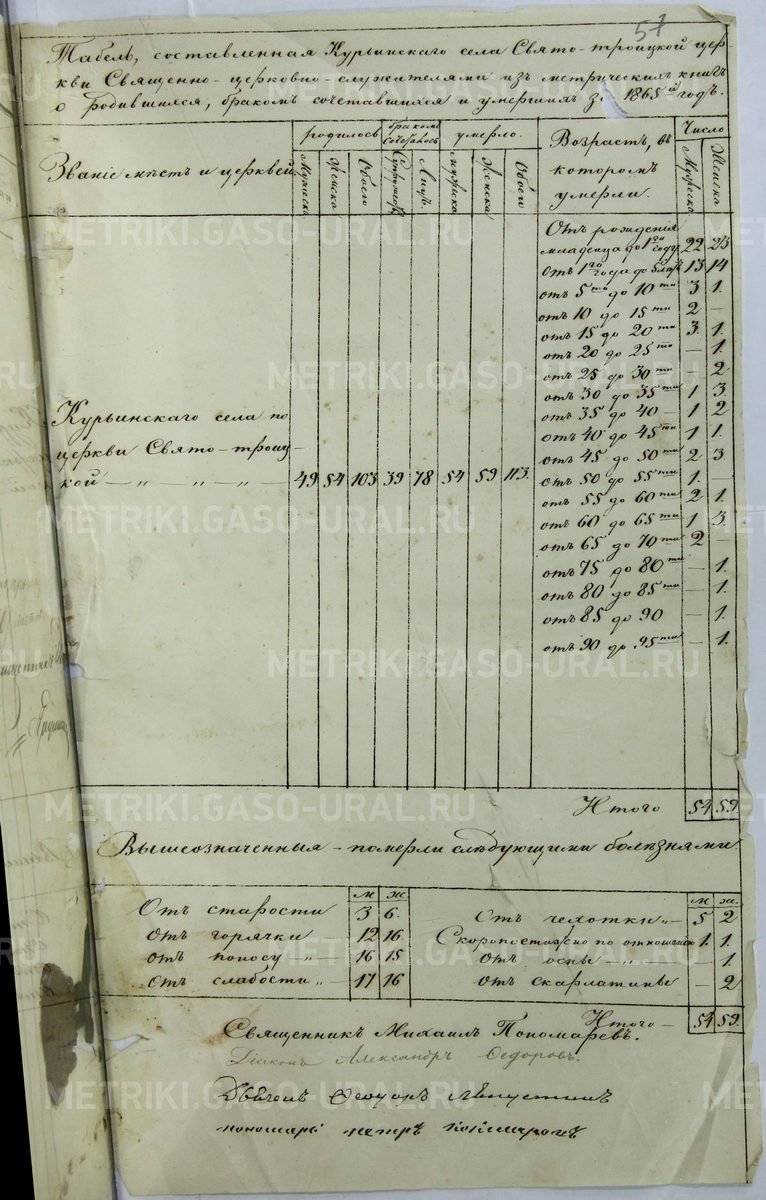 57
Табель, составленная Курьинскаго села Свято-троицкой цер-
кви Священно-церковно-служителями изъ метрическихъ книгъ
о родившихся, бракомъ сочетавшихся и умершихъ за 1865й годъ.
Званіе мѣстъ и церквей родилось бракомъ сочеталось умерло. Возрастъ, въ которомъ умерли. Число
Мужеска Женска Обоего Супружествъ Лицъ. Мужеска Женска Обоего Мужеска Женска
Отъ рожденія
младенца до 1го году 22 23
отъ 1го года до 5ти 13 14
отъ 5ти до 10ти 3 1.
отъ 10 до 15ти 2 —
отъ 15 до 20ти 3. 1.
отъ 20 до 25ти — 1.
отъ 25 до 30ти — 2
отъ 30 до 35ти 1 3.
отъ 35 до 40 — 1 2
отъ 40 до 45ти 1 1.
отъ 45 до 50ти 2 3
отъ 50 до 55ти 1. —
отъ 55 до 60ти 2 1.
отъ 60 до 65ти 1 3.
отъ 65 до 70ти 2 —
отъ 75 до 80ти — 1.
отъ 80 до 85ти — 1.
отъ 85 до 90 — 1.
отъ 90 до 95ти — 1.
Курьинскаго села по
церкви Свято-троиц-
кой — „ — „ — „ — 49 54 103 39 78 54 59 113.
Итого 54 59
Вышеозначенныя - померли слѣдующими болѣзнями
м ж м ж.
Отъ старости 3 6. Отъ чехотки „ — 5 2
Отъ горячки 12 16 Скоропостижно по отношению 1. 1.
отъ поносу — „ 16 15 Отъ оспы — „ — 1.
отъ слабости „ 17 16 отъ скарлатины — 2
Итого — 54 59.
Священникъ Михаилъ Пономаревъ.
Діаконъ Александръ Федоровъ.
Дьячекъ Ѳеодоръ
пономарь петръ
METRIKI.GASO-URAL.RU